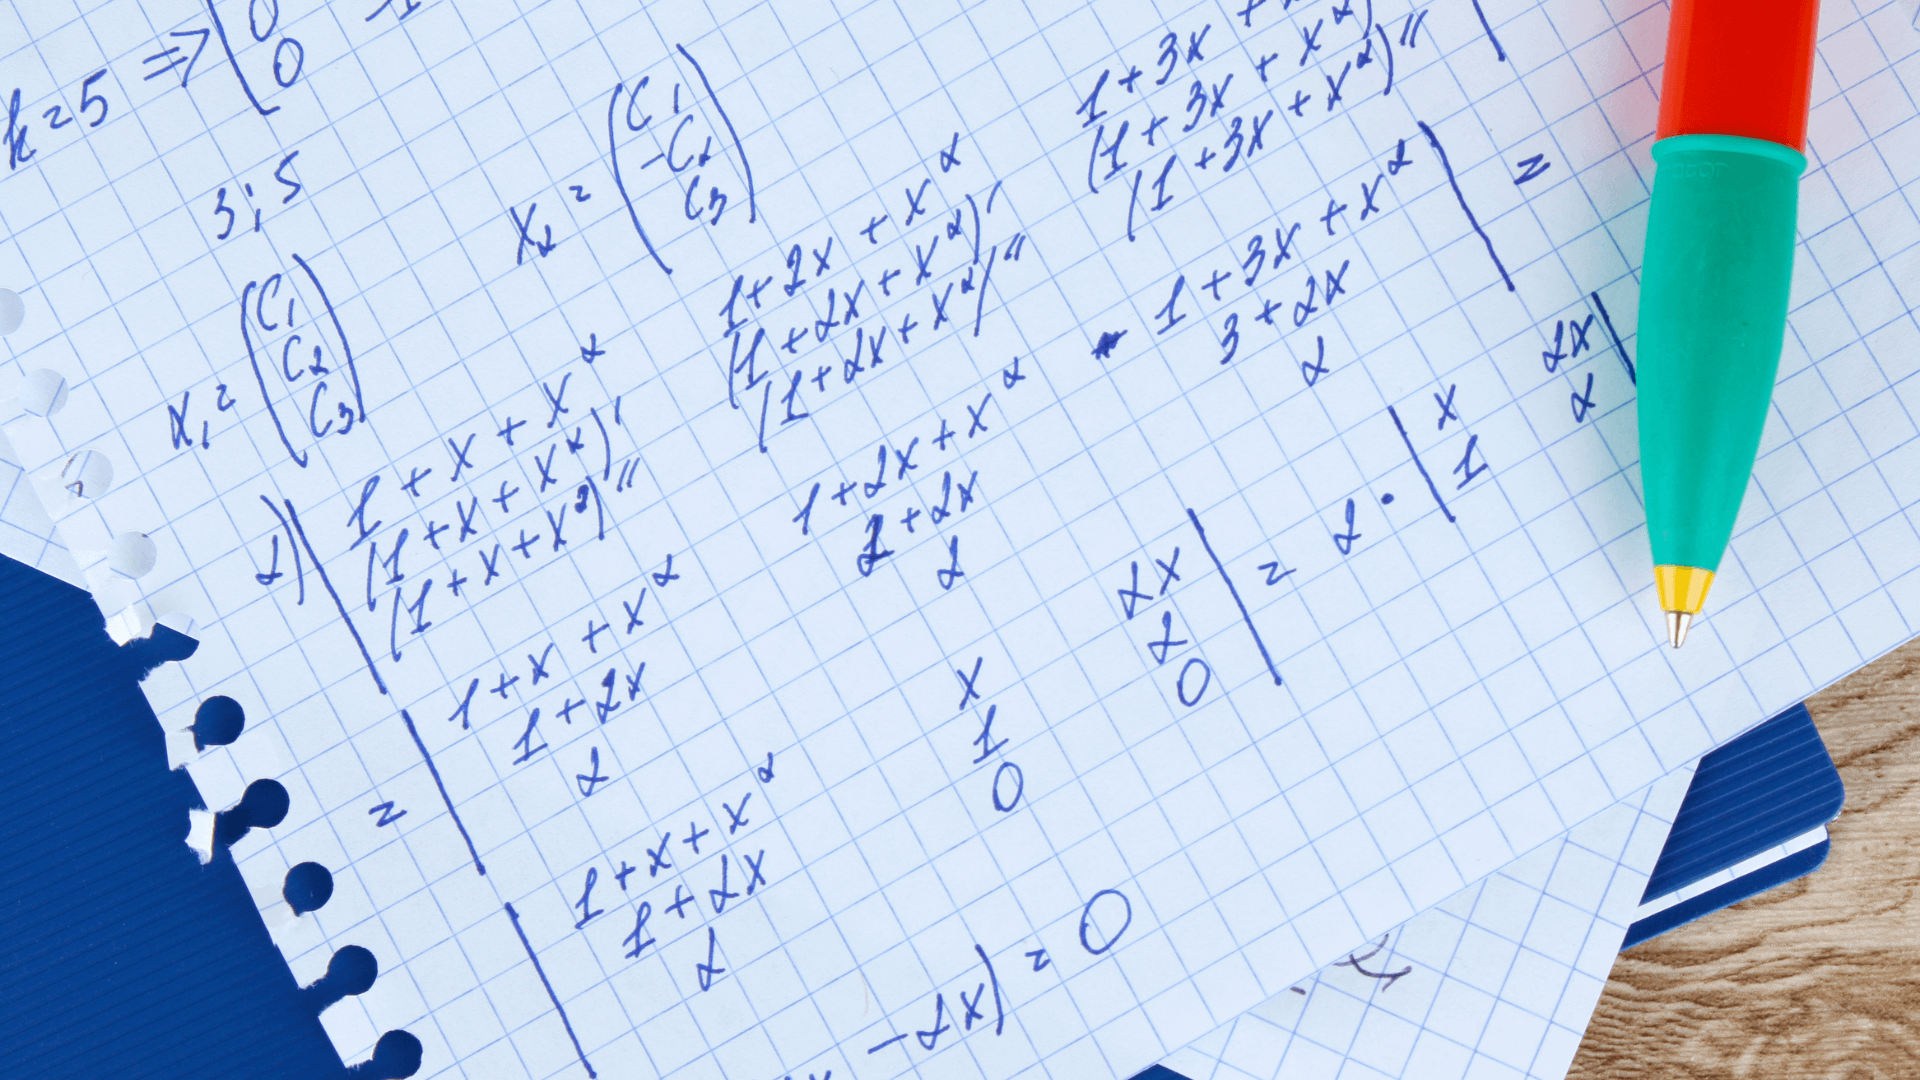 k=5 ⇒ [0 -1
0
3; 5
x₁ = (C₁
C₂
C₃)
x₂ = (C₁
-C₂
C₃)
2) | 1+x+x² 1+2x+x² 1+3x+
(1+x+x²)' (1+2x+x²)' (1+3x+x²)
(1+x+x²)'' (1+2x+x²)'' (1+3x+x²)'' |
= | 1+x+x² 1+2x+x² 1+3x+x² | =
1+2x 2+2x 3+2x
2 2 2
| 1+x+x² x 2x | = 2· | x 2x |
1+2x 1 2 1 2
2 0 0
-2x) = 0